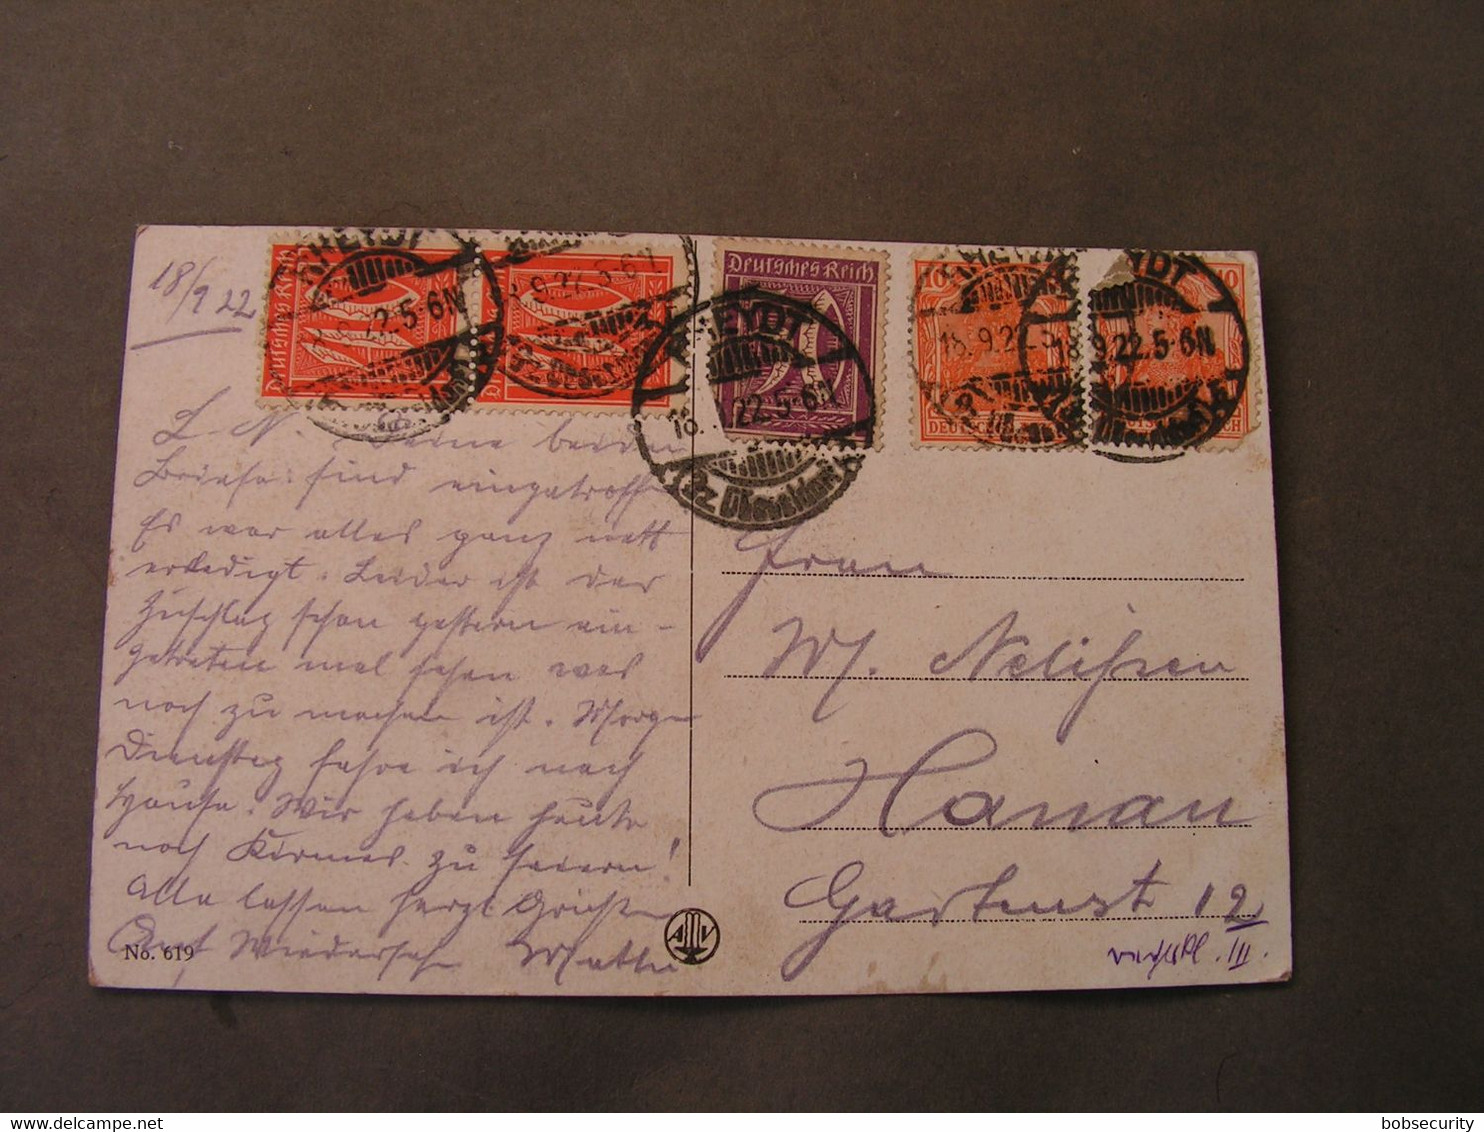 18/9 22
Deutsches Reich
Deutsches Reich
RHEYDT
18.9.22.5-6N
Bz. Düsseldorf
10
10
DEUTSCHES REICH
L. N. Deine beiden
Briefe sind eingetroffen
Es war alles ganz nett
erledigt. Leider ist der
Zuschlag schon gestern ein-
getreten mal sehen was
noch zu machen ist. Morgen
Dienstag fahre ich nach
Hause. Wir haben heute
noch Kirmes zu feiern!
Alle lassen herzl. Grüßen
Auf Wiedersehn
No. 619
A V
Frau
M. Nelißen
Hanau
Gartenst 12
III.
bobsecurity